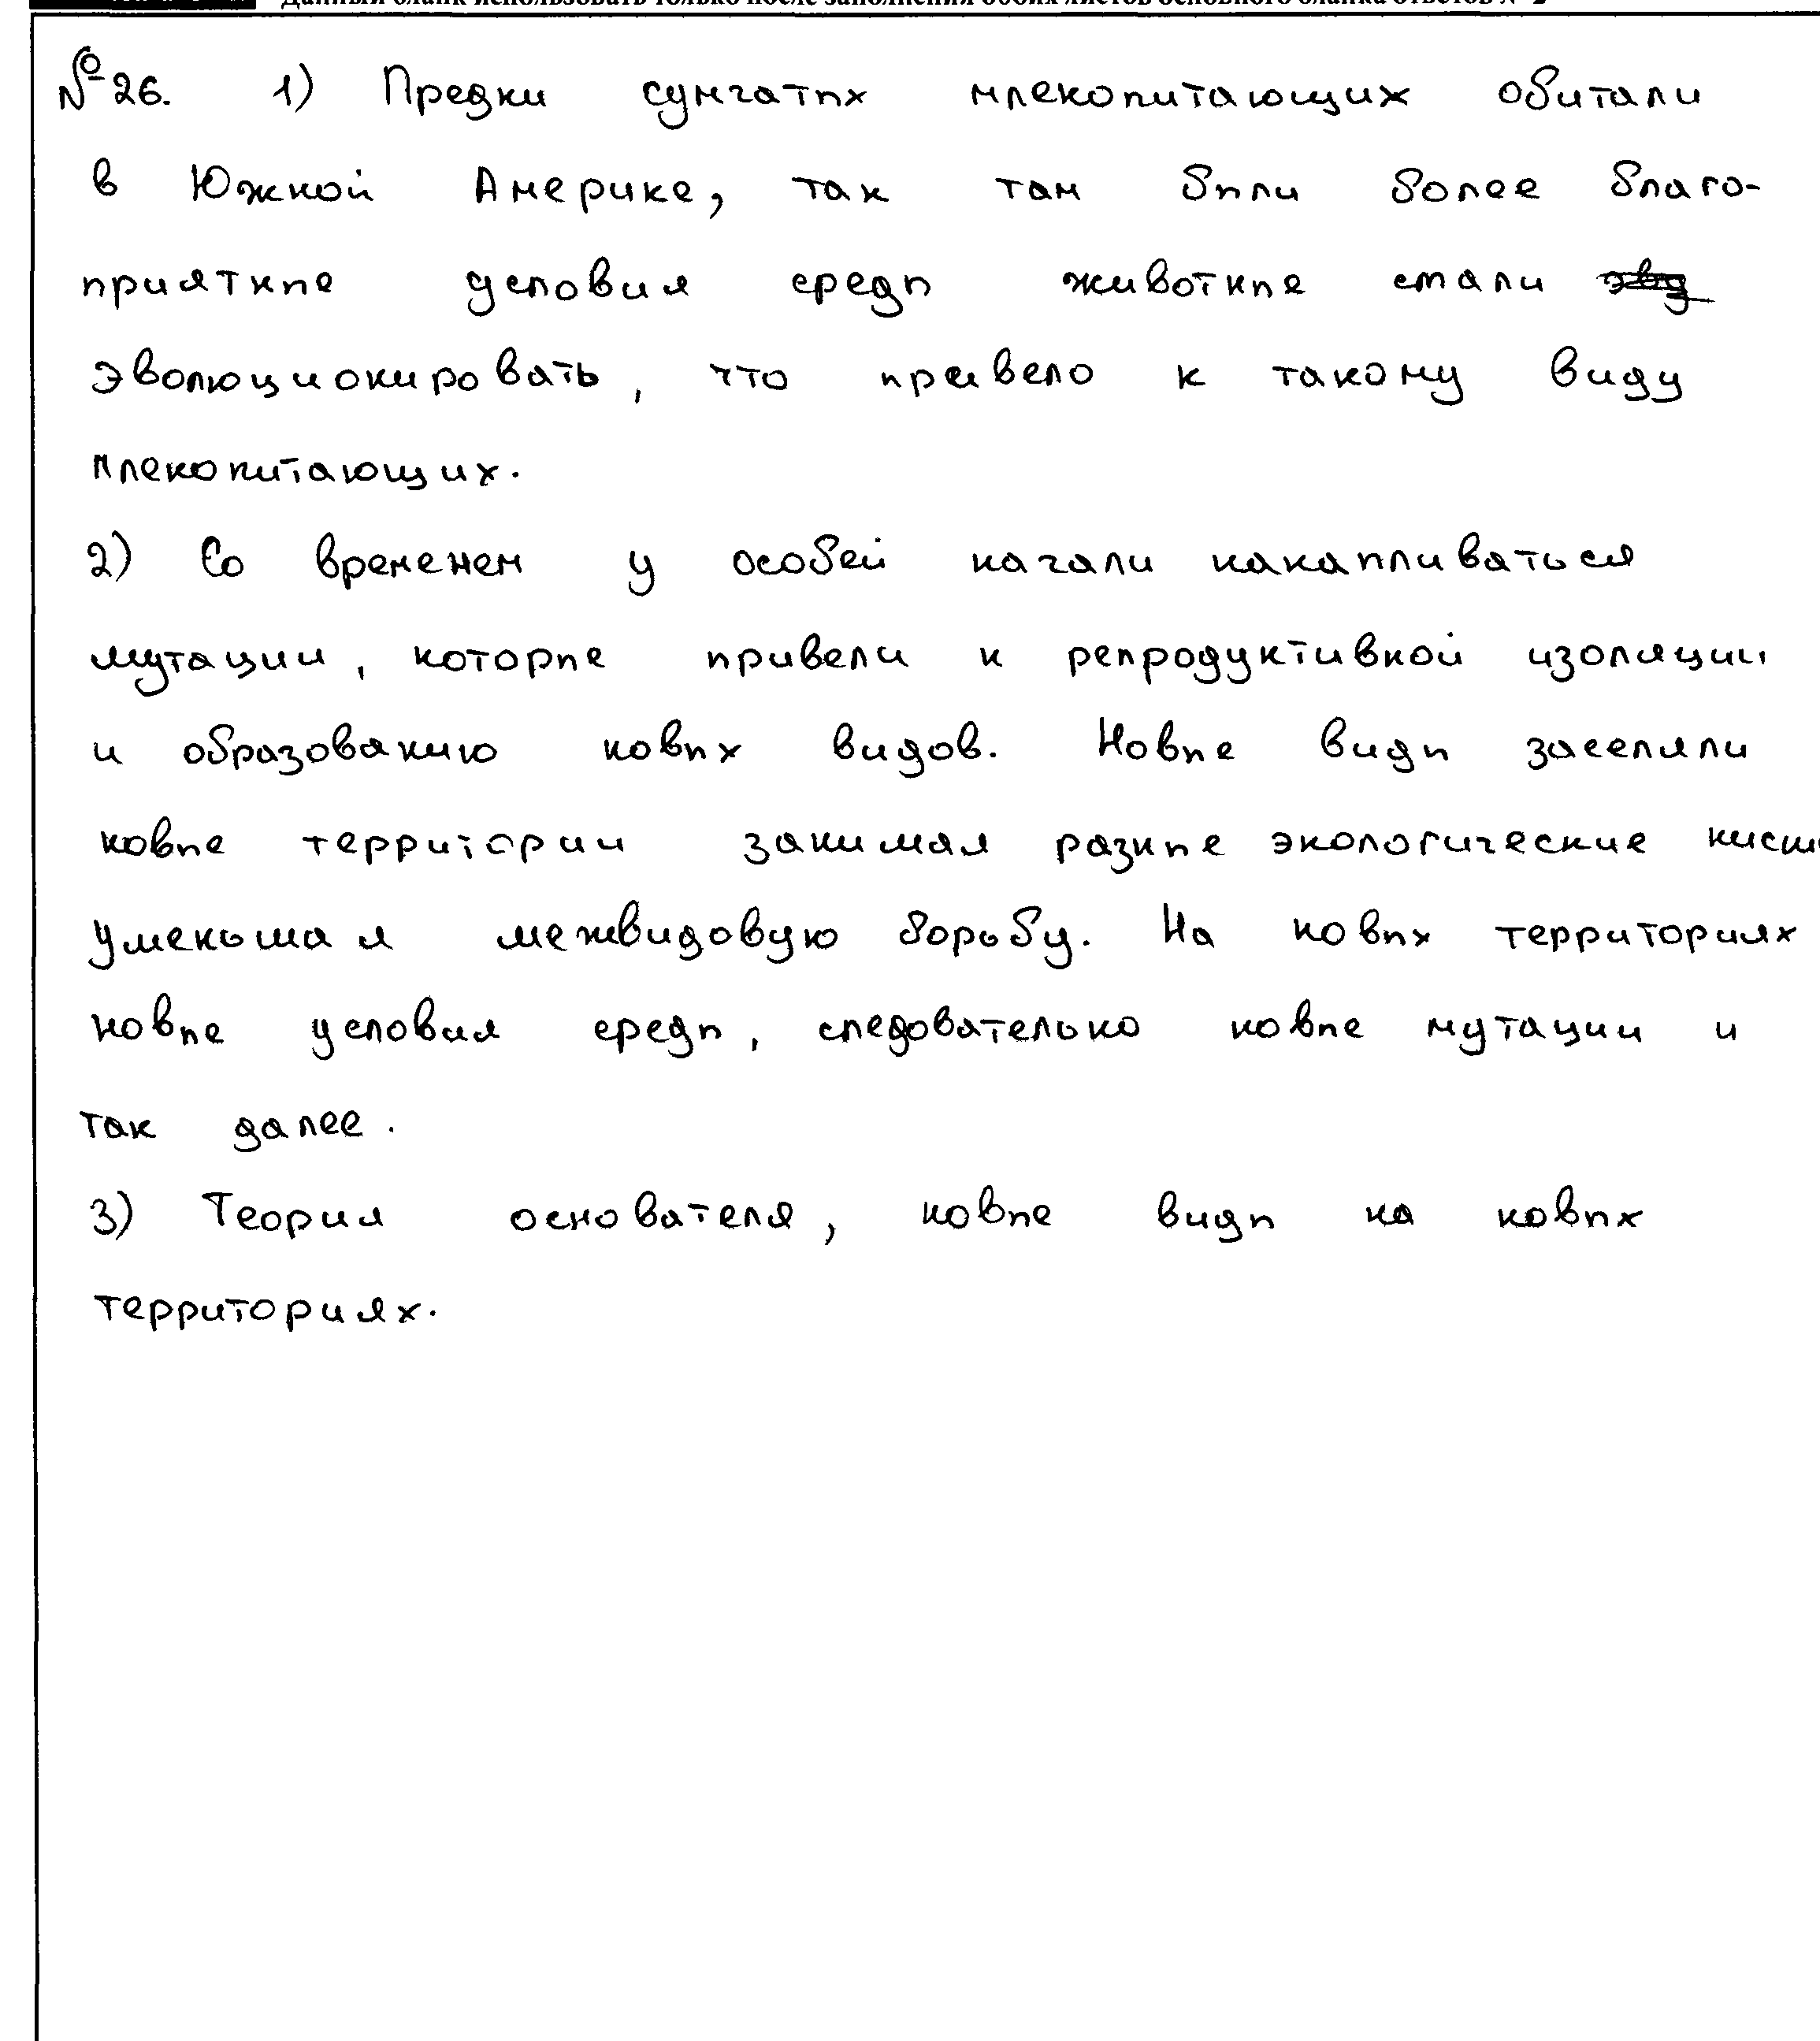 Данный бланк использовать только после заполнения обоих листов основного бланка ответов № 2
№ 26. 1) Предки сумчатых млекопитающих обитали
в Южной Америке, так там были более благо-
приятные условия среды животные стали
эволюционировать, что привело к такому виду
млекопитающих.
2) Со временем у особей начали накапливаться
мутации, которые привели к репродуктивной изоляции
и образованию новых видов. Новые виды заселяли
новые территории занимая разные экологические ниши
уменьшая межвидовую борьбу. На новых территориях
новые условия среды, следовательно новые мутации и
так далее.
3) Теория основателя, новые виды на новых
территориях.